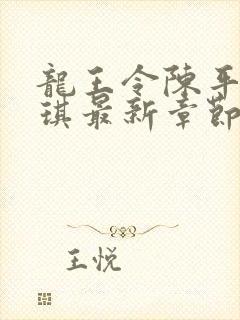 龍王令陳平
琪最新章節
王悅